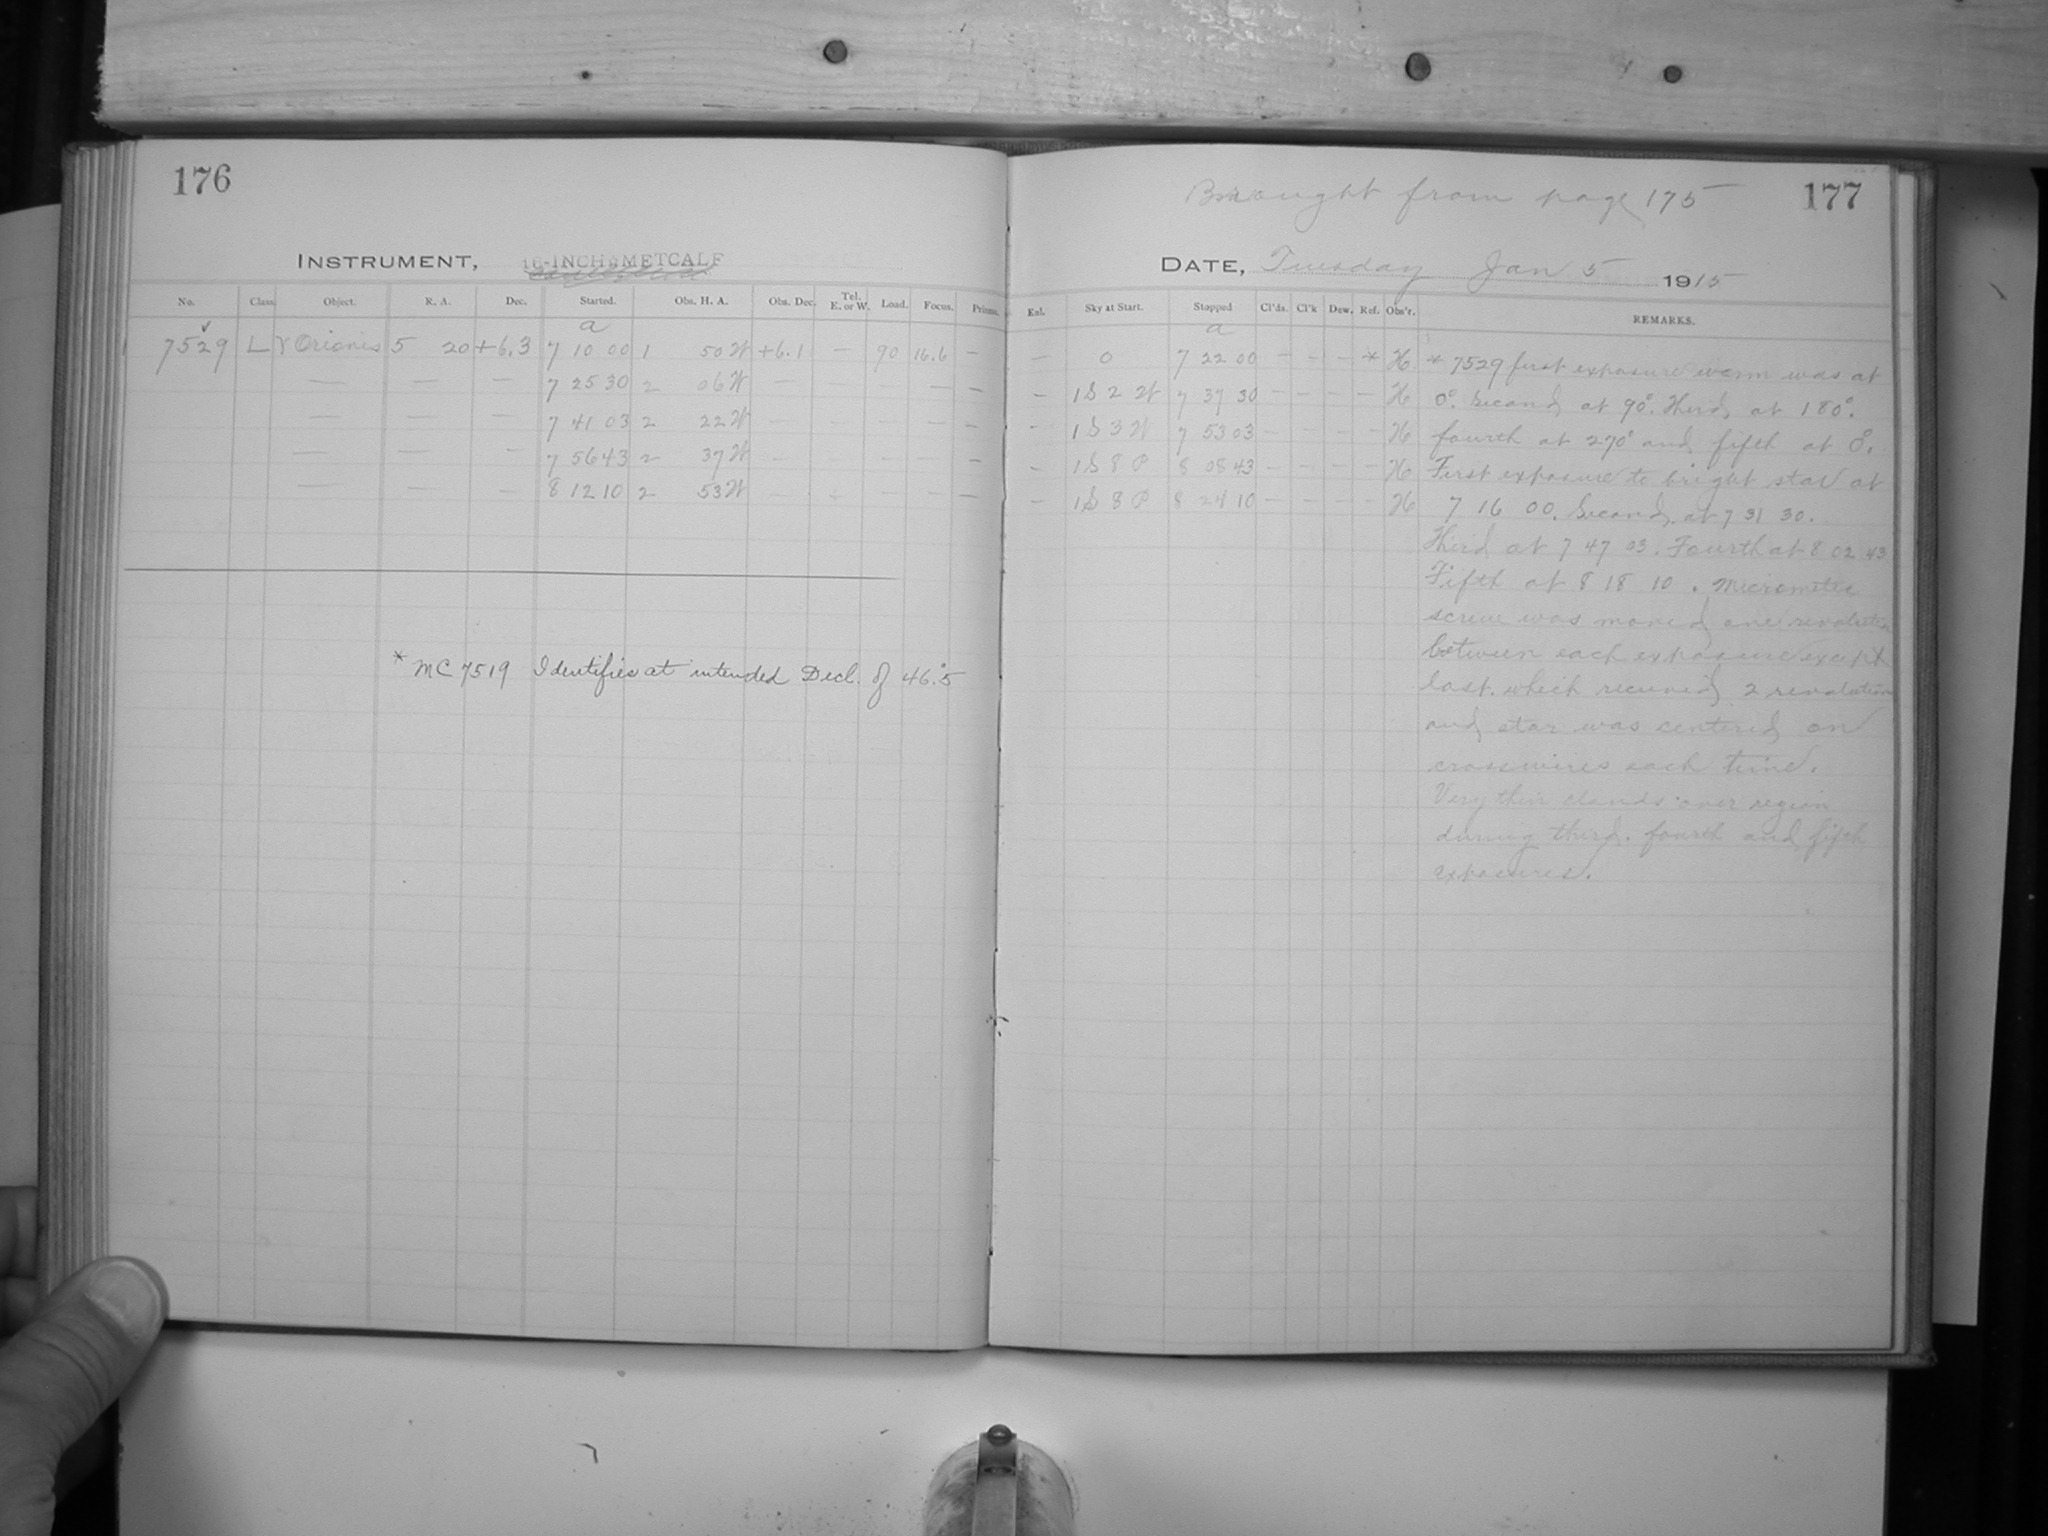 176
INSTRUMENT, 16-INCH METCALF
No. Class. Object. R. A. Dec. Started. Obs. H. A. Obs. Dec. Tel. E. or W. Load. Focus. Prisms.
a
7529 L γ Orionis 5 20 +6.3 7 10 00 1 50 W +6.1 — 90 16.6 —
— — — 7 25 30 2 06 W — — — — —
— — — 7 41 03 2 22 W — — — — —
— — — 7 56 43 2 37 W — — — — —
— — — 8 12 10 2 53 W — — — — —
* MC 7519 Identifies at intended Decl. of 46.°5
Brought from page 175
177
DATE, Tuesday Jan 5 1915
Enl. Sky at Start. Stopped Cl'ds. Cl'k Dew. Ref. Obs'r. REMARKS.
a
— 0 7 22 00 — — — * H
— 1 S 2 W 7 37 30 — — — — H
— 1 S 3 W 7 53 03 — — — — H
— 1 S 8 P 8 08 43 — — — — H
— 1 S 8 P 8 24 10 — — — — H
* 7529 first exposure worm was at
0°. Second at 90°. Third at 180°.
fourth at 270° and fifth at 0°.
First exposure to bright star at
7 16 00. Second at 7 31 30.
Third at 7 47 03. Fourth at 8 02 43
Fifth at 8 18 10. Micrometer
screw was moved one revolution
between each exposure except
last. which received 2 revolutions
and star was centered on
crosswires each time.
Very thin clouds over region
during third. fourth and fifth
exposures.